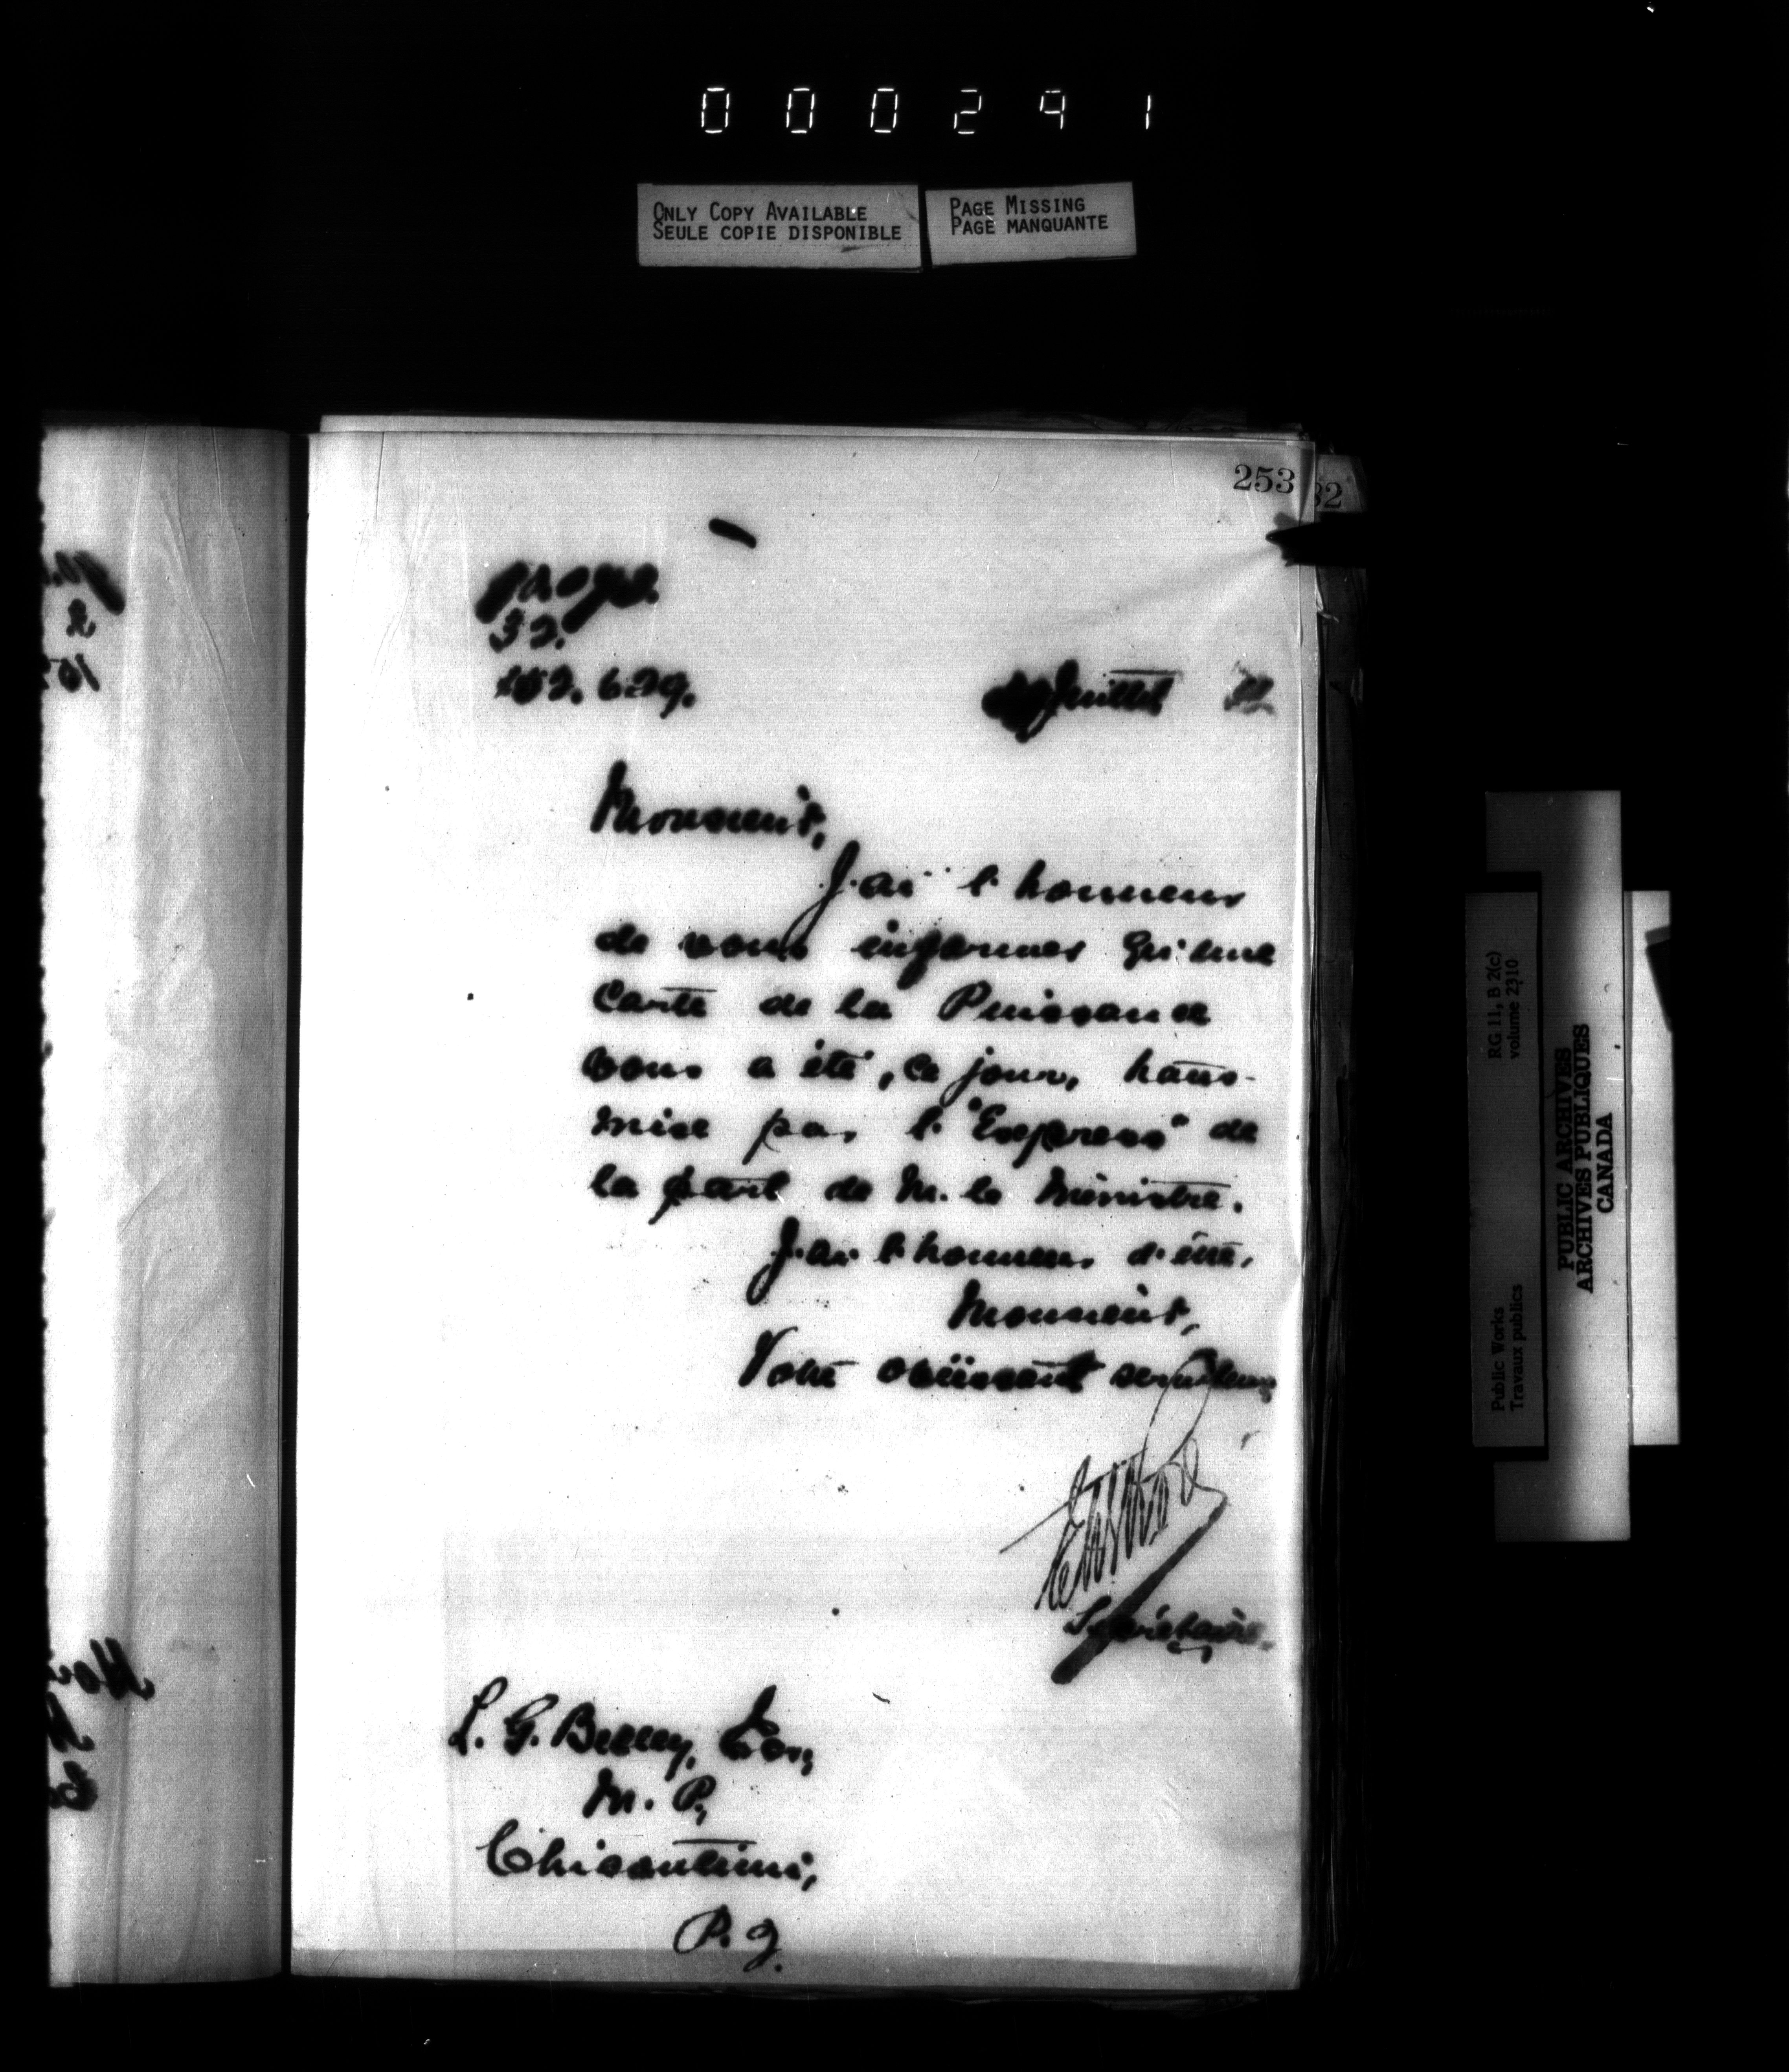 000291
ONLY COPY AVAILABLE
SEULE COPIE DISPONIBLE
PAGE MISSING
PAGE MANQUANTE
253
32
32.
152.629.
Juillet
Monsieur,
J'ai l'honneur
de vous informer qu'une
Carte de la Puissance
vous a été, ce jour, trans-
mise par l'"Express" de
la part de M. le Ministre.
J'ai l'honneur d'être,
Monsieur,
Votre obéissant serviteur
Secrétaire.
L. G. Belley, Esq,
M. P.,
Chicoutimi,
P. Q.
RG 11, B 2(c)
volume 2310
Public Works
Travaux publics
PUBLIC ARCHIVES
ARCHIVES PUBLIQUES
CANADA